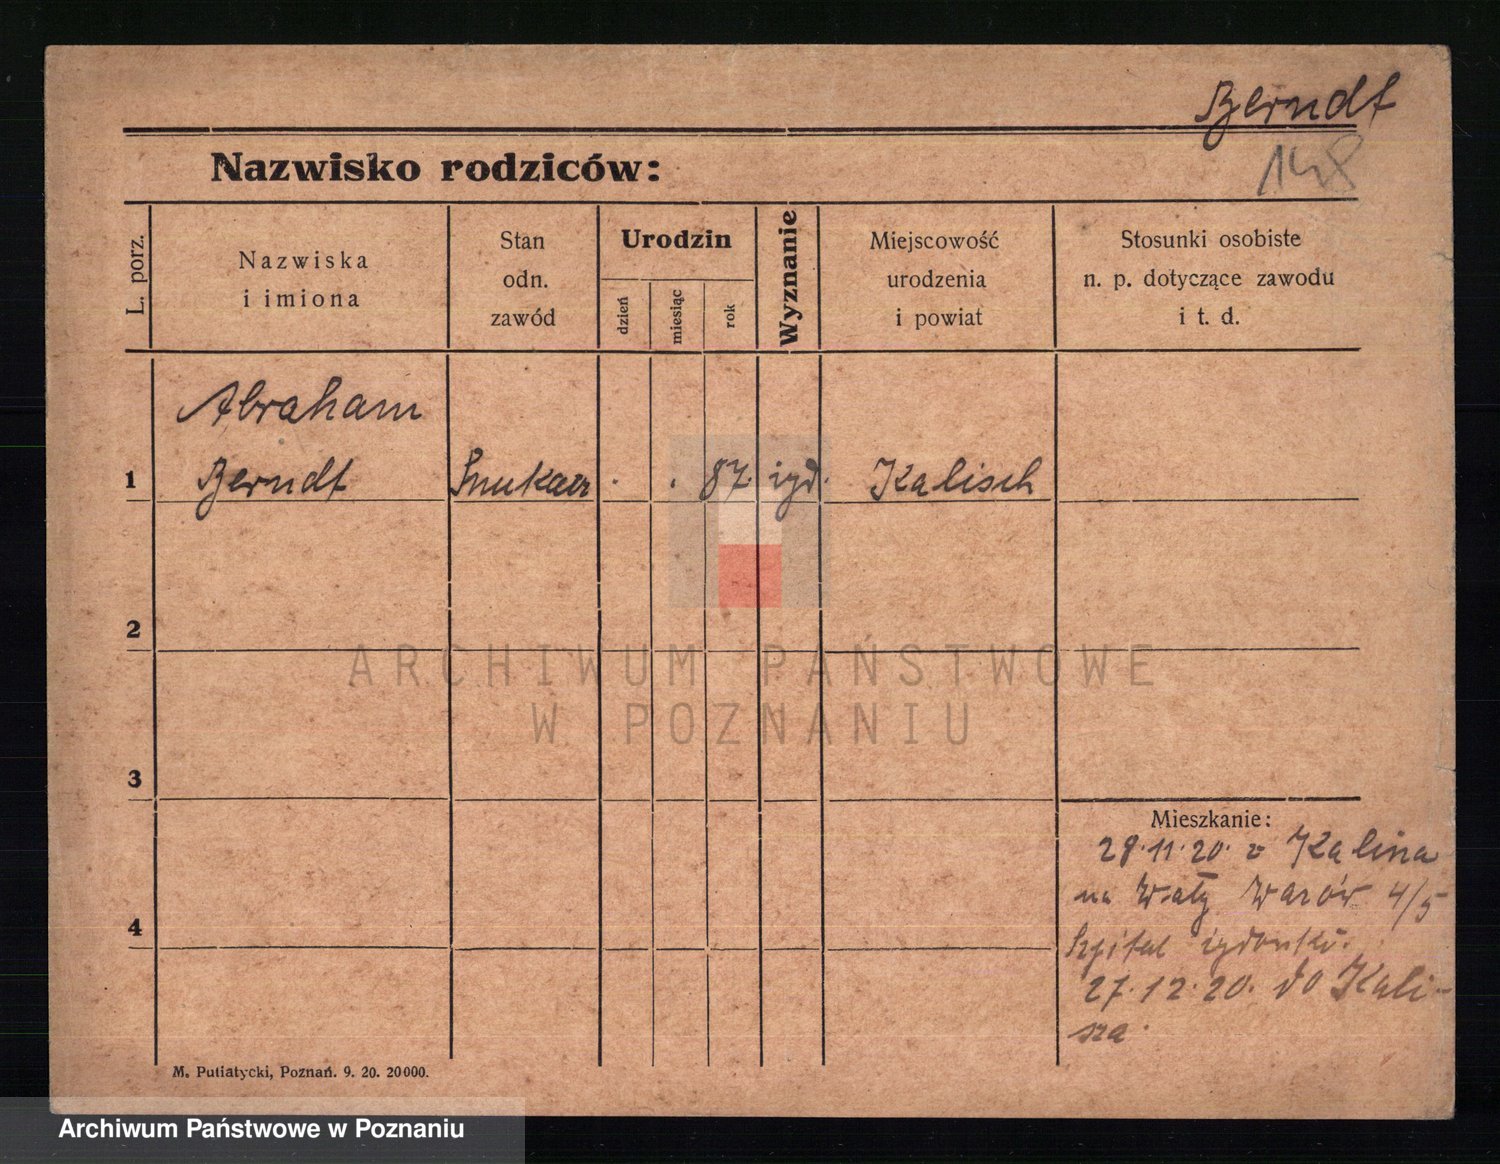 Berndt
148
Nazwisko rodziców:
L. porz.
Nazwiska
i imiona
Stan
odn.
zawód
Urodzin
dzień
miesiąc
rok
Wyznanie
Miejscowość
urodzenia
i powiat
Stosunki osobiste
n. p. dotyczące zawodu
i t. d.
Abraham
1 Berndt . . 87. iyd. Kalisch
2
ARCHIWUM PAŃSTWOWE
W POZNANIU
3
Mieszkanie:
28.11.20. z Kalina
na Wały 4/5
4
Szpital
27.12.20. do Kali-
sza.
M. Putiatycki, Poznań. 9. 20. 20000.
Archiwum Państwowe w Poznaniu